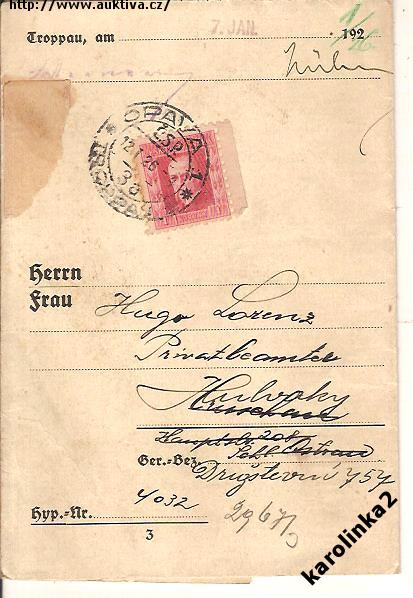 http://www.auktiva.cz/
Troppau, am 7. JAN. 192
1/26
OPAVA 1
Č.S.P.
12.I.26
3a
TROPPAU
Herrn
Frau
Hugo Lorenz
Privatbeamter
Hulvaky
Hauptstr. 208
Schl. Ostrau
Ger.-Bez.
Družstevní 757
4032
Hyp.-Nr.
2967/3
karolinka2